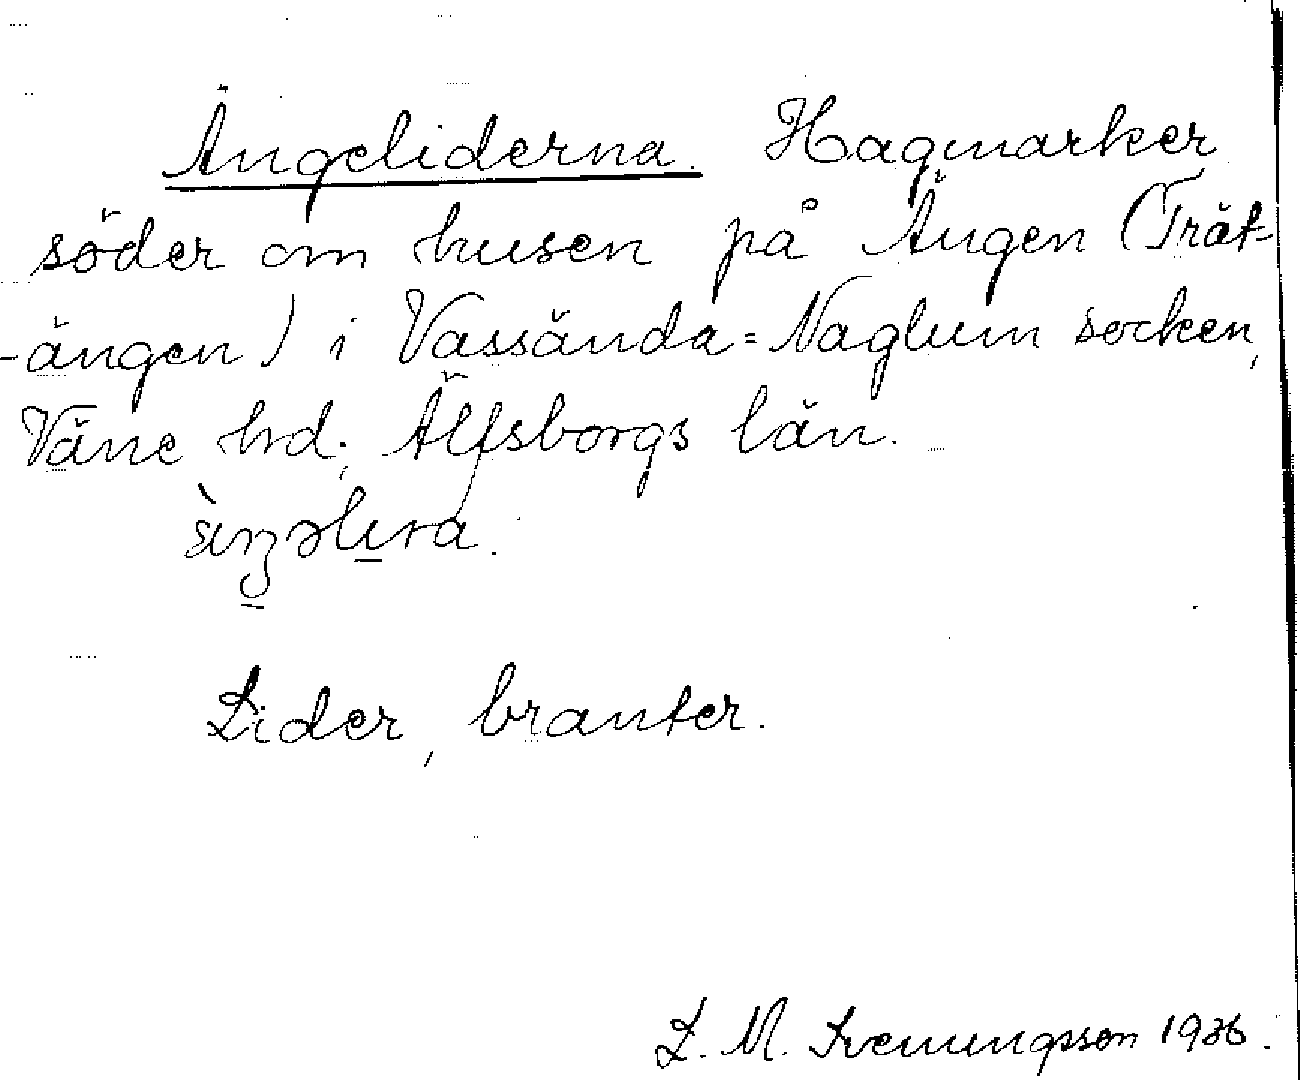 Ängeliderna. Hagmarker
söder om husen på Ängen (Trät-
-ängen) i Vassända=Naglum socken,
Väne hrd; Älfsborgs län.
Lider, branter.
L. M. Svenungsson 1936.